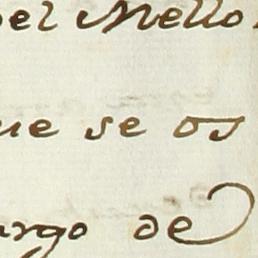 el Mello
ue se os
argo de